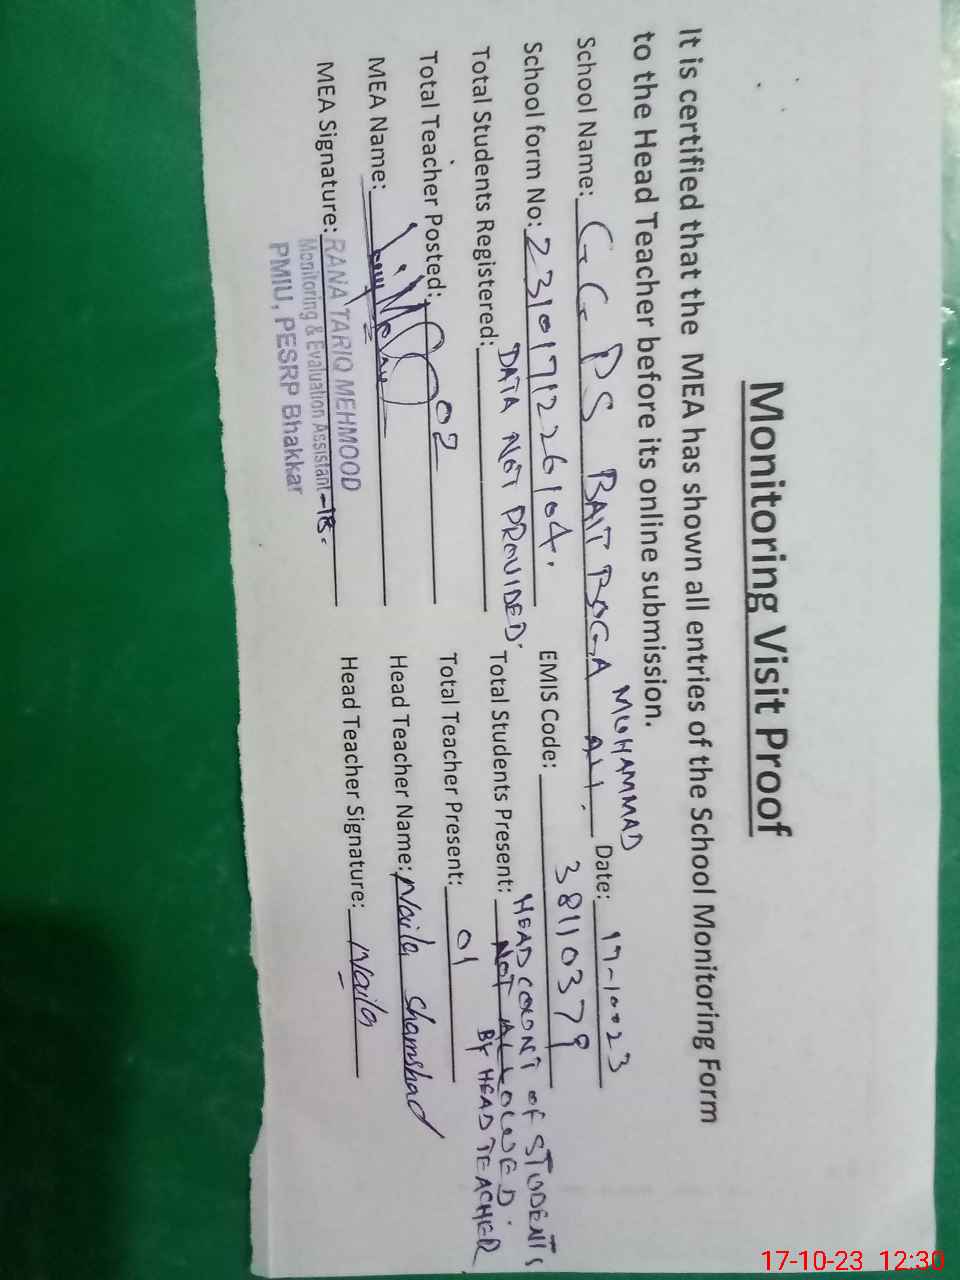 Monitoring Visit Proof
It is certified that the MEA has shown all entries of the School Monitoring Form
to the Head Teacher before its online submission.
MUHAMMAD
School Name: GGPS BAIT BAGA ALI. Date: 17-10-23
School form No: 2310171226104. EMIS Code: 38110379
Total Students Registered: DATA NOT PROVIDED. Total Students Present: HEAD COUNT OF STUDENTS
NOT ALLOWED.
BY HEAD TEACHER
Total Teacher Posted: 02 Total Teacher Present: 01
MEA Name: Head Teacher Name: Naila Shamshad
MEA Signature: RANA TARIQ MEHMOOD Head Teacher Signature: Naila
Monitoring & Evaluation Assistant-18.
PMIU, PESRP Bhakkar
17-10-23 12:30